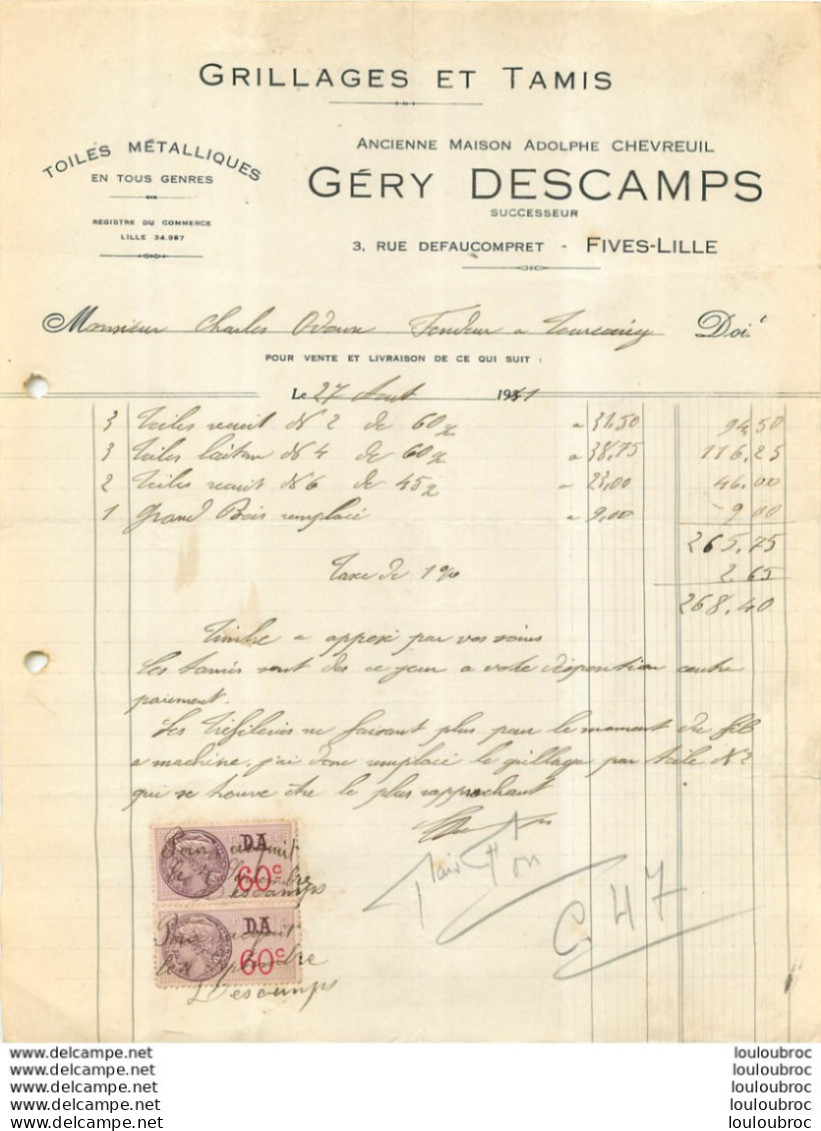 GRILLAGES ET TAMIS
TOILES MÉTALLIQUES
EN TOUS GENRES
REGISTRE DU COMMERCE
LILLE 34.987
ANCIENNE MAISON ADOLPHE CHEVREUIL
GÉRY DESCAMPS
SUCCESSEUR
3, RUE DEFAUCOMPRET - FIVES-LILLE
Monsieur Charles Fondeur a Tourcoing Doit
POUR VENTE ET LIVRAISON DE CE QUI SUIT :
Le 27 Aout 1941
3 Toiles recuit N 2 de 60 a 31,50 94,50
3 Toiles laiton N 4 de 60 a 38,75 116,25
2 Toiles recuit N 6 de 45 23,00 46,00
1 Grand Bois remplacé a 9,00 9,00
265,75
Taxe de 1% 2,65
268,40
Timbre a apposé par vos soins
Les tamis sont des ce jour a votre disposition contre
paiement.
Les Tréfileries ne faisant plus pour le moment du fil
a machine. j'ai donc remplacé le grillage par toile N 2
qui se trouve être le plus rapprochant
Pour acquit
DA
60c
Descamps
Pour acquit
DA
60c
septembre
Descamps
C 47
www.delcampe.net louloubroc
www.delcampe.net louloubroc
www.delcampe.net louloubroc
www.delcampe.net louloubroc
www.delcampe.net louloubroc